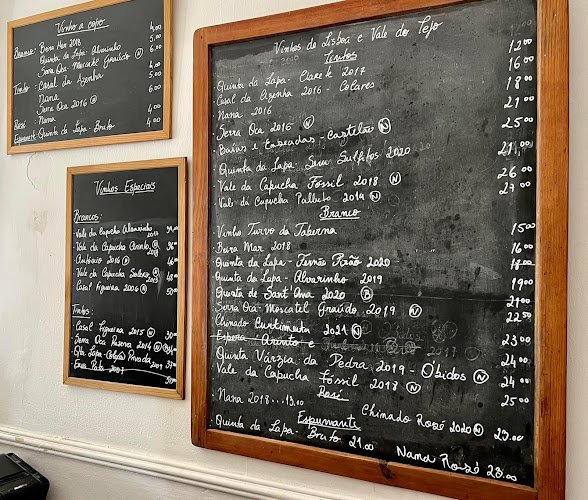 Vinho a copo
Brancos: Beira Mar 2018 4,00
Quinta da Lapa - Alvarinho 5,00
Serra Oca - Moscatel Graúdo Ⓝ 6,00
Tinto: Casal da Azenha 4,00
Nana 5,00
Serra Oca 2016 Ⓝ 6,00
Rosé: Nana 4,00
Espumante: Quinta da Lapa - Bruto 4,00
Vinhos Especiais
Brancos:
- Vale da Capucha Alvarinho
- Vale da Capucha Arinto Ⓝ
- 2016 Ⓝ
- Vale da Capucha Ⓝ
- Casal Figueira 2006 Ⓝ
Tintos:
- Casal Figueira 2015 Ⓝ 30,00
- Serra Oca Reserva 2014 Ⓝ
- Qta Lapa - Coleção Privada
2007
Vinhos de Lisboa e Vale do Tejo
Tintos
Quinta da Lapa - Clarete 2017 12.00
Casal da Azenha 2016 - Colares 16.00
Nana 2016 18.00
Serra Oca 2016 Ⓝ 21.00
Baías e Enseadas - Castelão Ⓝ 25.00
Quinta da Lapa - Sem Sulfitos 2020 21,00
Vale da Capucha Fóssil 2018 Ⓝ 26.00
Vale da Capucha Palhete 2014 Ⓝ 27.00
Branco
Vinho Turvo da Taberna 15.00
Beira Mar 2018 16.00
Quinta da Lapa - Fernão Pirão 2020 18.00
Quinta da Lapa - Alvarinho 2019 19.00
Quinta de Sant'Ana 2020 Ⓑ 21.00
Serra Oca - Moscatel Graúdo 2019 Ⓝ 22.50
Chinado Curtimenta 2021 Ⓝ 23.00
Espera - Arinto e
Quinta Várzea da Pedra 2019 - Óbidos Ⓝ 24.00
Vale da Capucha Fóssil 2018 Ⓝ 25.00
Rosé
Nana 2018...19.00 Chinado Rosé 2020 Ⓝ 23.00
Espumante
Quinta da Lapa - Bruto 21.00 Nana Rosé 23.00